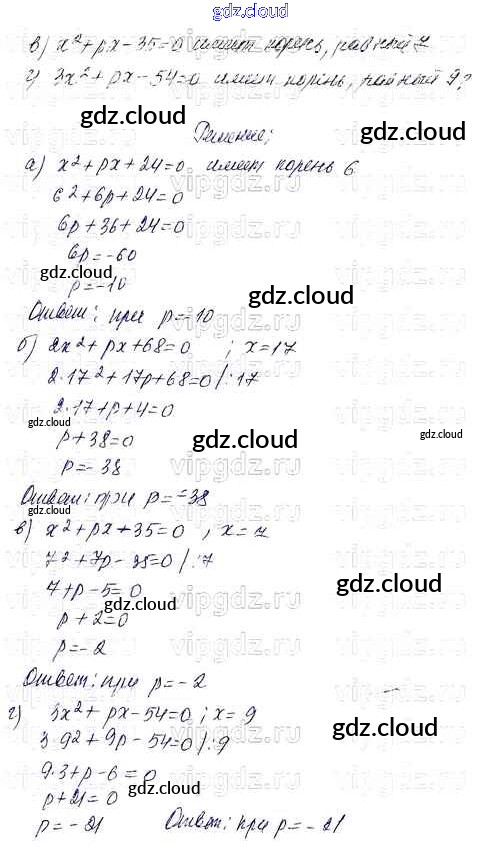 gdz.cloud
в) x²+px-35=0 имеет корень, равный 7
г) 3x²+px-54=0 имеет корень, равный 9?
gdz.cloud gdz.cloud
Решение:
а) x²+px+24=0 имеет корень 6
6²+6p+24=0
6p+36+24=0
6p=-60
gdz.cloud
p=-10
gdz.cloud
Ответ: при p=-10
б) 2x²+px+68=0 ; x=17
2·17²+17p+68=0/:17
2·17+p+4=0
gdz.cloud
p+38=0 gdz.cloud gdz.cloud
p=-38
Ответ: при p=-38
gdz.cloud
в) x²+px+35=0 , x=7
7²+7p-35=0/:7
7+p-5=0 gdz.cloud
gdz.cloud
p+2=0
p=-2
Ответ: при p=-2
г) 3x²+px-54=0 ; x=9
gdz.cloud
3·9²+9p-54=0/:9
9·3+p-6=0
gdz.cloud
p+21=0
p=-21 Ответ: при p=-21